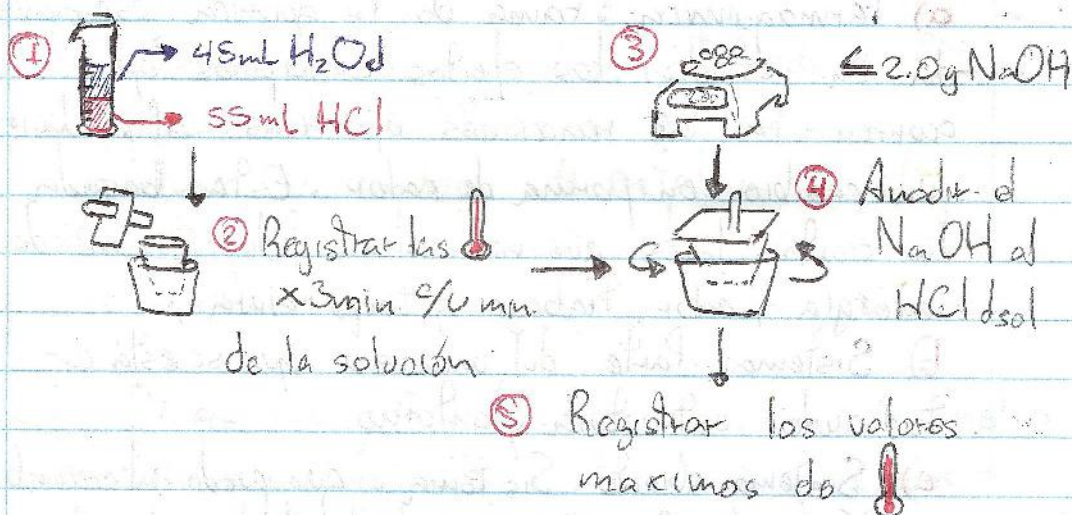 ① → 45mL H₂Od
→ 55mL HCl
② Registrar las
x3min c/u min.
de la solución
③ ≤2.0g NaOH
④ Anadir el
NaOH al
HCl dsol
⑤ Registrar los valores
maximos de